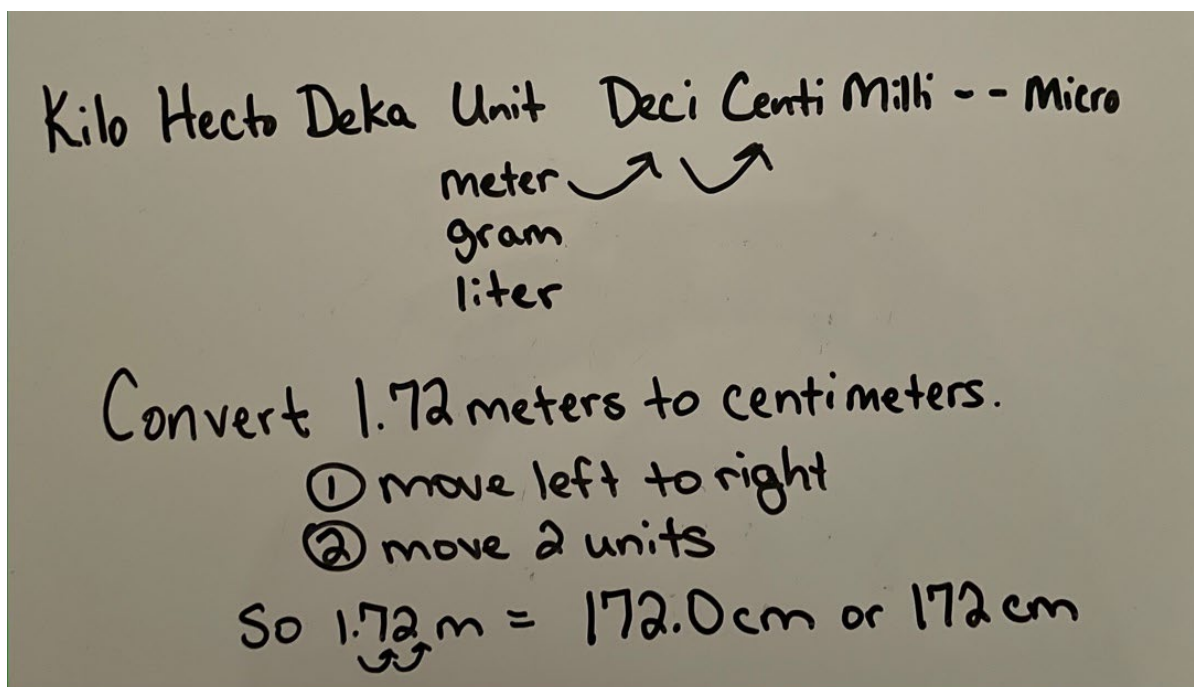 Kilo Hecto Deka Unit Deci Centi Milli -- Micro
meter
gram
liter
Convert 1.72 meters to centimeters.
① move left to right
② move 2 units
So 1.72 m = 172.0 cm or 172 cm